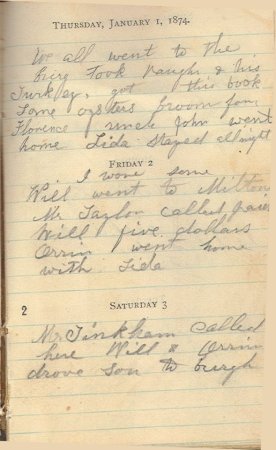 THURSDAY, JANUARY 1, 1874.
We all went to the
Burg Took Vaughn & his
Turkey, got this book
Some oysters broom for
Florence uncle John went
home Lida Stayed all night
FRIDAY 2
I wove some
Will went to Milton
Mr Taylor called
Will five dollars
Orrin went home
with Lida
2
SATURDAY 3
Mr Tinkham called
here Will & Orrin
drove son to burgh